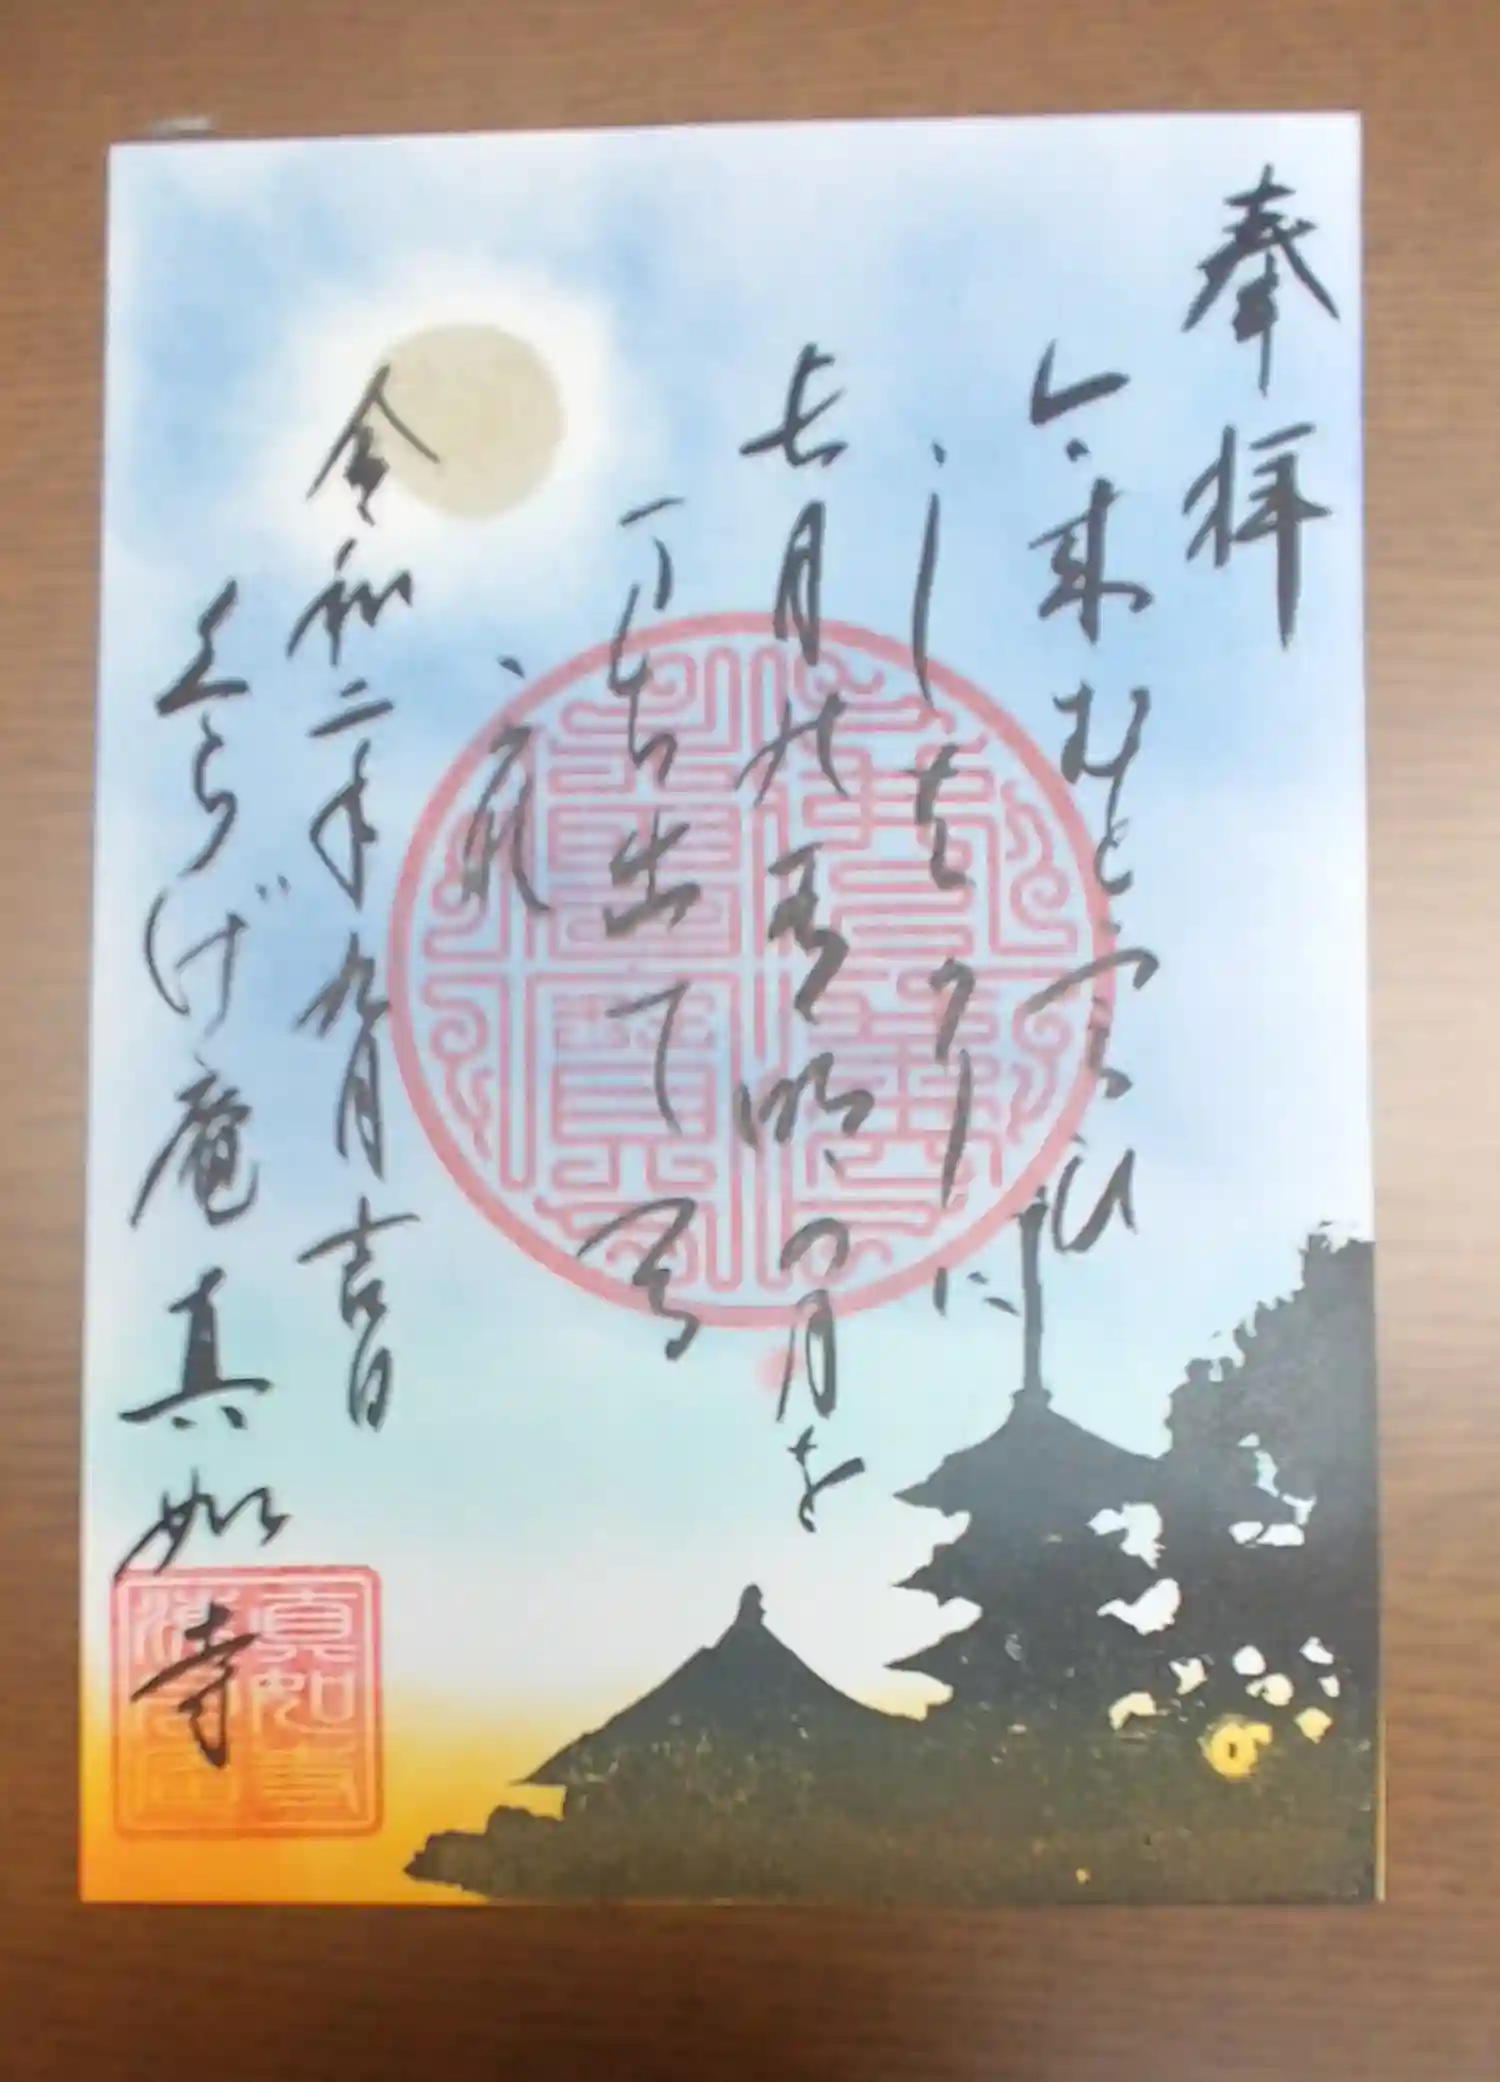 奉拝
今来むと云ひ
しばかりに
長月の有明の月を
待ち出てつる
哉
令和二年九月吉日
くらげ庵真如寺